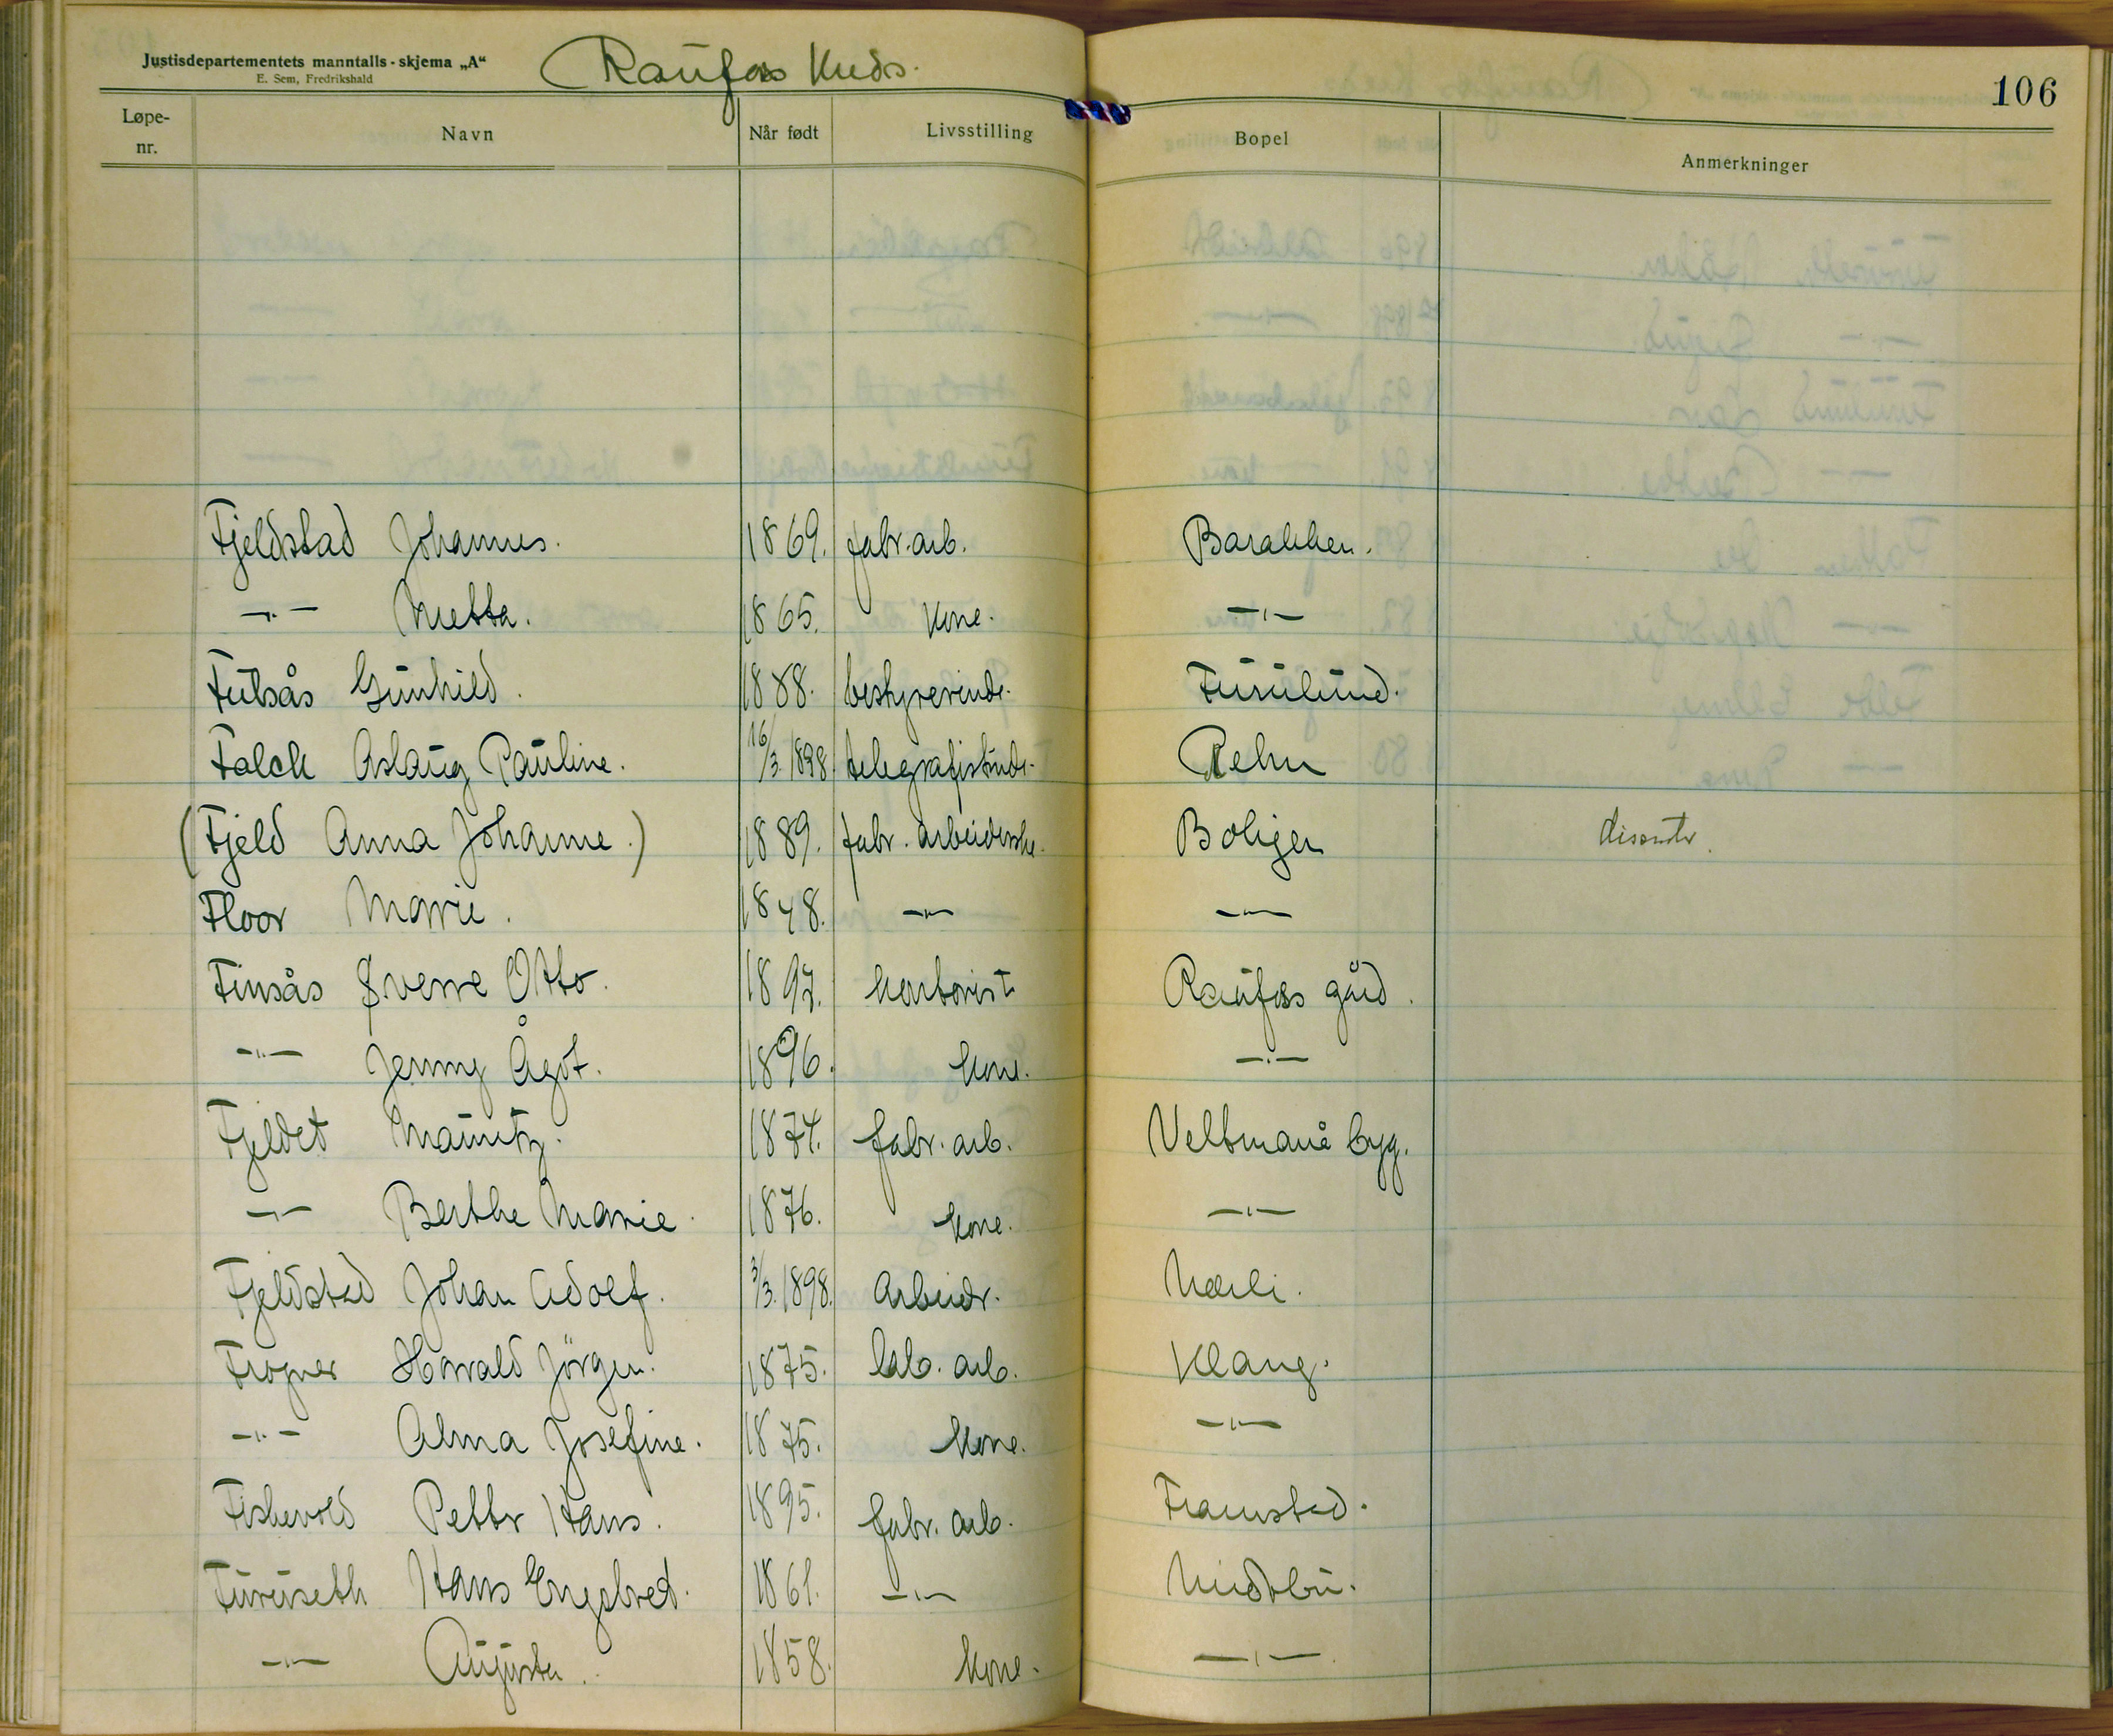 Justisdepartementets manntalls-skjema „A“
E. Sem, Fredrikshald
Raufos Kreds.
106
Løpe-nr. Navn Når født Livsstilling Bopel Anmerkninger
Fjeldstad Johannes. 1869. fabr. arb. Barakken.
—"— Mette. 1865. kone. —"—
Fulsås Gunhild. 1888. bestyrerinde. Furulund.
Falck Aslaug Pauline. 16/3. 1898. telegrafistinde. Rehn
(Fjeld Anna Johanne.) 1889. fabr. arbeiderske. Boligen disenter.
Floor Marie. 1848. —"— —"—
Finsås Sverre Otto. 1897. kontorist Raufos gård.
—"— Jenny Ågot. 1896. kone. —"—
Fjeldet Mauritz. 1874. fabr. arb. Veltmanå byg.
—"— Berthe Marie. 1876. kone. —"—
Fjeldstad Johan Adolf. 3/3. 1898. Arbeider. Nærli.
Frogner Harald Jörgen. 1875. lab. arb. Klang.
—"— Alma Josefine. 1875. kone. —"—
Fiskevold Petter Hans. 1895. fabr. arb. Framstad.
Furuseth Hans Engebret. 1861. —"— Midtbu.
—"— Augusta. 1858. kone. —"—